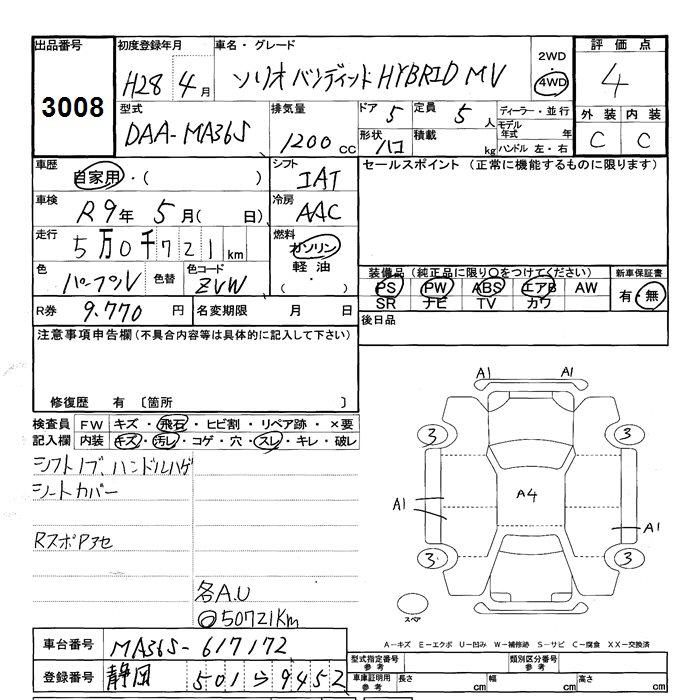 出品番号
3008
初度登録年月
H28 4月
車名・グレード
ソリオバンディット HYBRID MV
2WD
4WD
評価点
4
型式
DAA-MA36S
排気量
1200cc
ドア 5
定員 5人
形状 ハコ
積載 kg
ディーラー・並行
モデル年式 年
ハンドル 左・右
外装 内装
C C
車歴
自家用・( )
シフト
IAT
車検
R9年 5月( 日)
冷房
AAC
走行
5万0千721km
燃料
ガソリン
軽油
( ・ )
色
パープル
色替
色コード
ZVW
R券 9.770円
名変期限 月 日
セールスポイント (正常に機能するものに限ります)
装備品(純正品に限り○をつけてください)
PS PW ABS エアB AW
SR ナビ TV カワ
新車保証書
有・無
後日品
注意事項申告欄(不具合内容等は具体的に記入して下さい)
修復歴 有 〔箇所 〕
検査員記入欄
FW キズ・飛石・ヒビ割・リペア跡・×要
内装 キズ・汚レ・コゲ・穴・スレ・キレ・破レ
シフトノブ、ハンドルハゲ
シートカバー
RスポPアセ
各A.U
◎50721Km
A1 A1
3 3
A1
A4
A1
3 3
スペア
A-キズ E-エクボ U-凹み W-補修跡 S-サビ C-腐食 XX-交換済
車台番号 MA36S-617172
登録番号 静岡 501 そ 9452
型式指定番号 参考
類別区分番号 参考
車庫証明用 参考
長さ cm
幅 cm
高さ cm